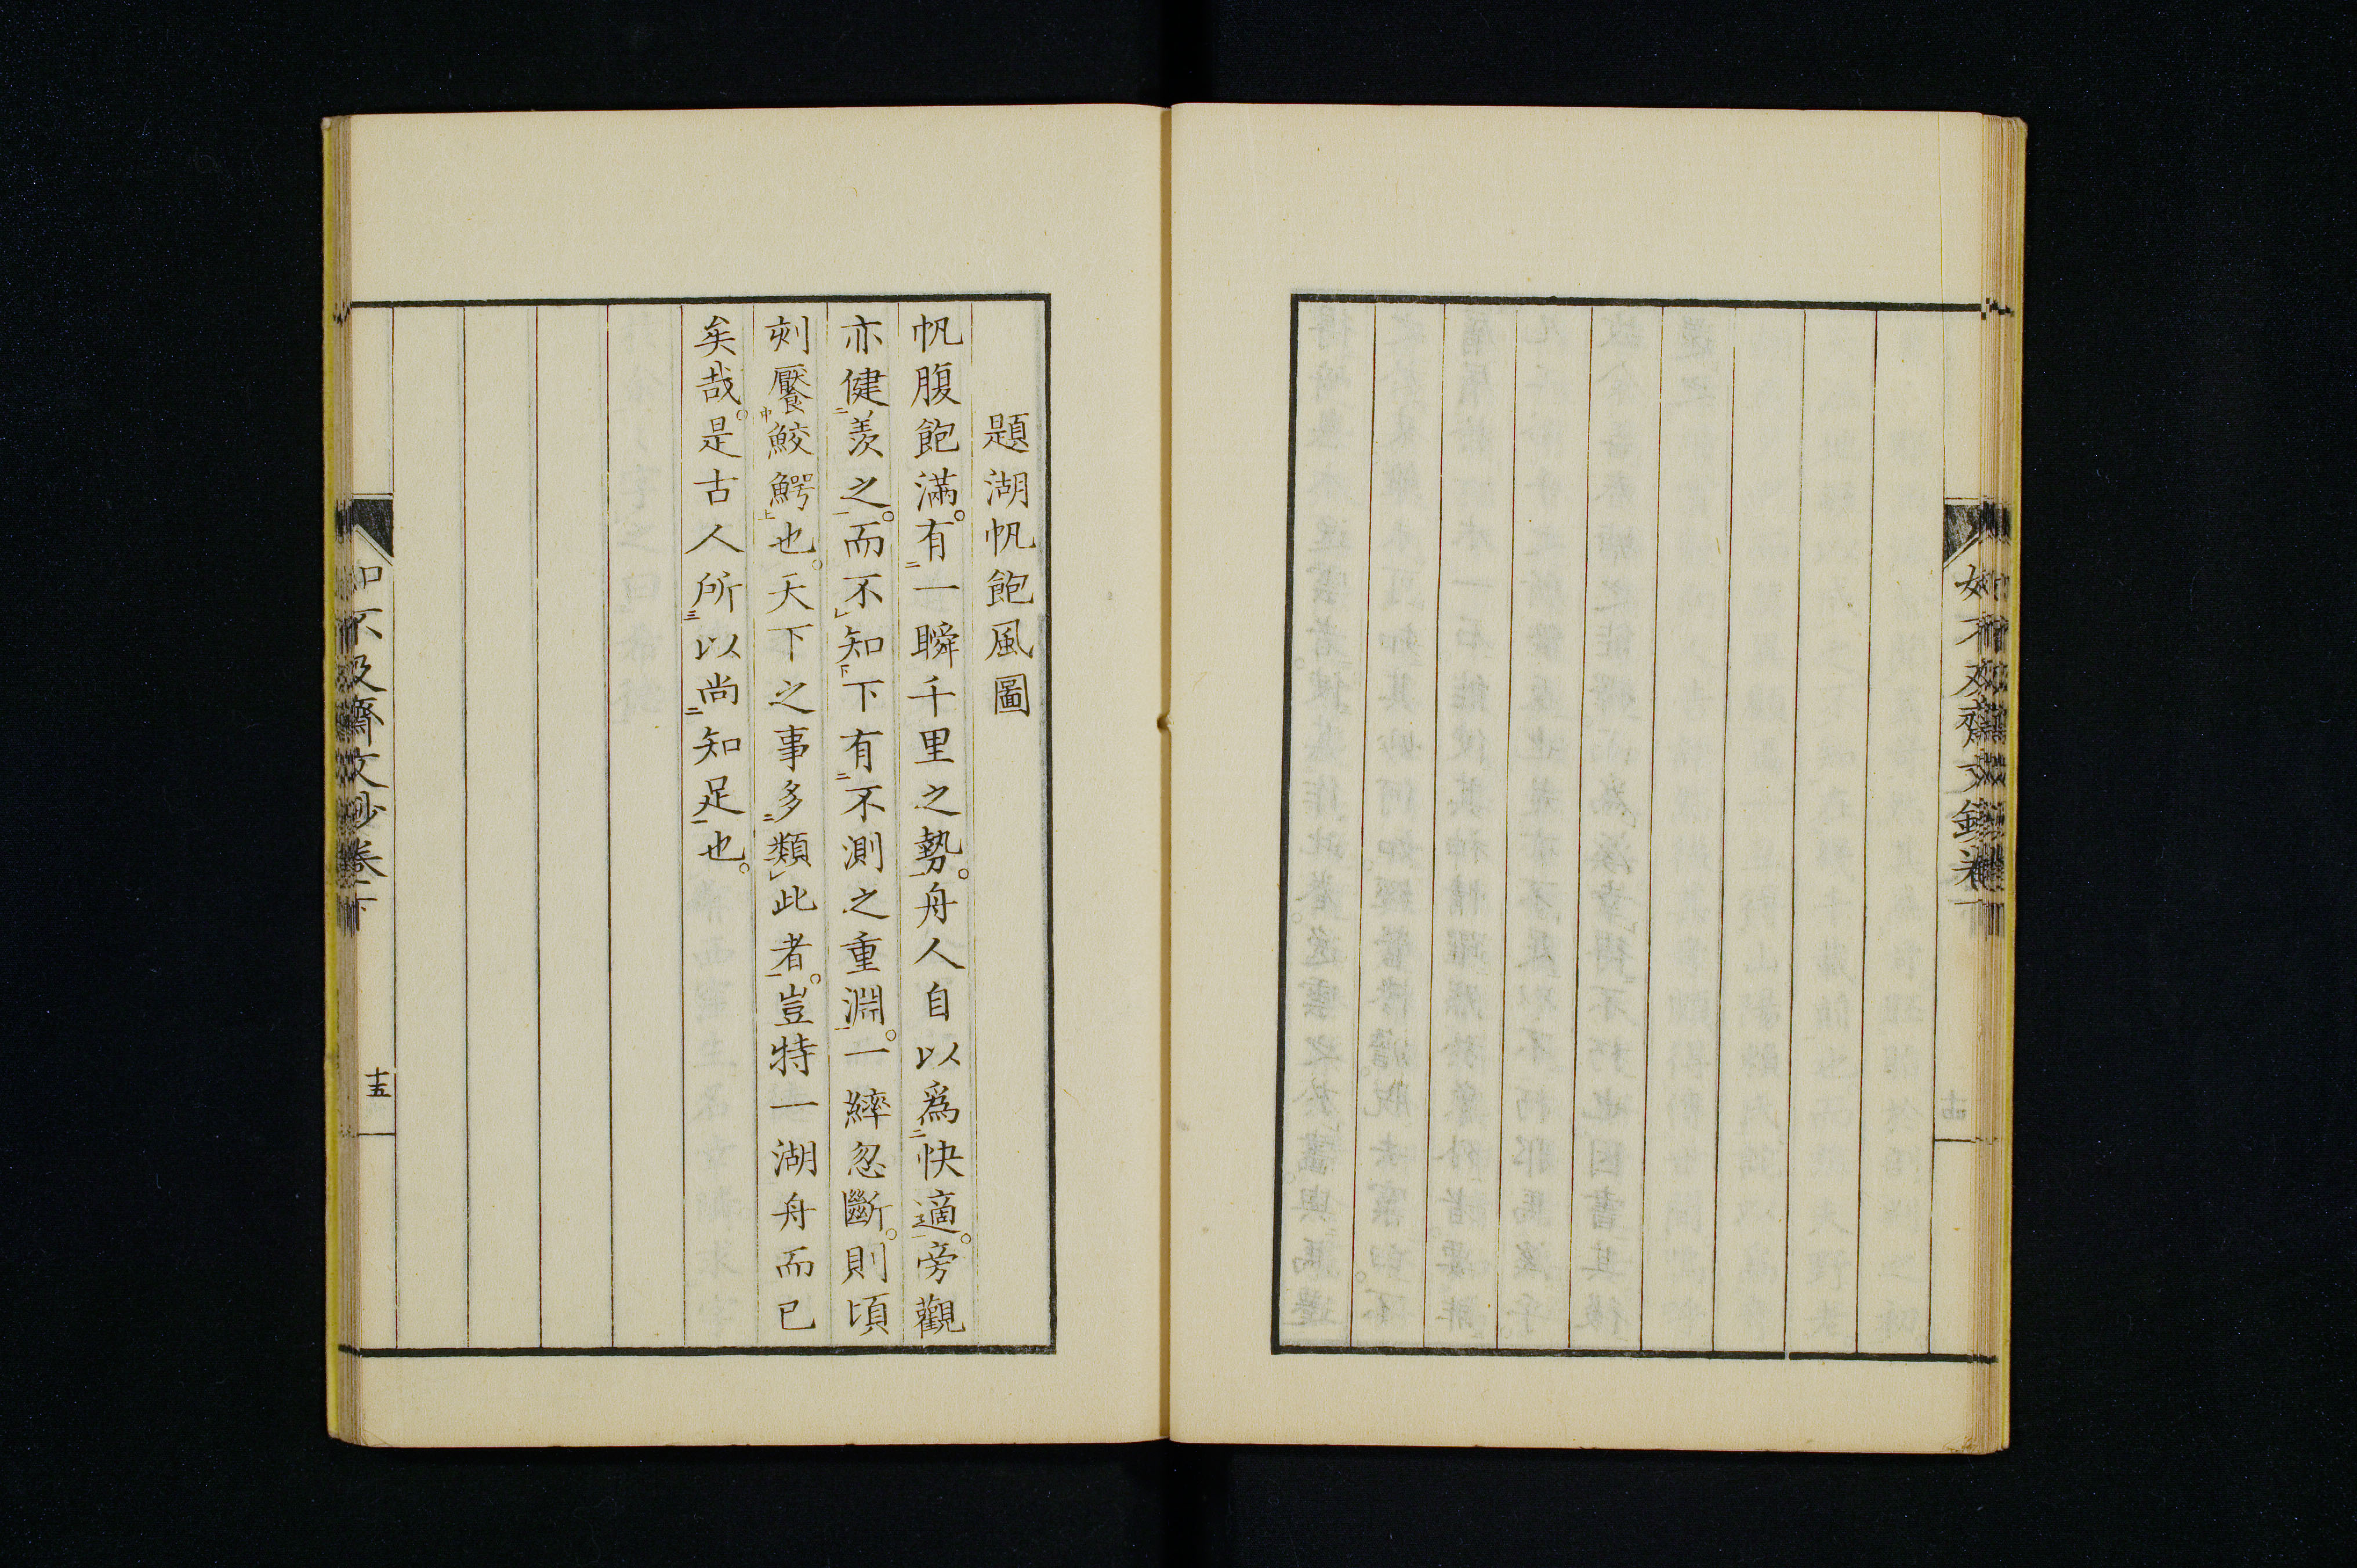 如不及齋文鈔卷下
題湖帆飽風圖
帆腹飽滿。有二一瞬千里之勢一。舟人自以爲二快適一。旁觀
亦健二羨之一。而不レ知下下有二不測之重淵一。一繂忽斷。則頃
刻饜中鮫鰐上也。天下之事多三類レ此者一。豈特一湖舟而已
矣哉。是古人所三以尚二知足一也。
如不及齋文鈔卷下
十五